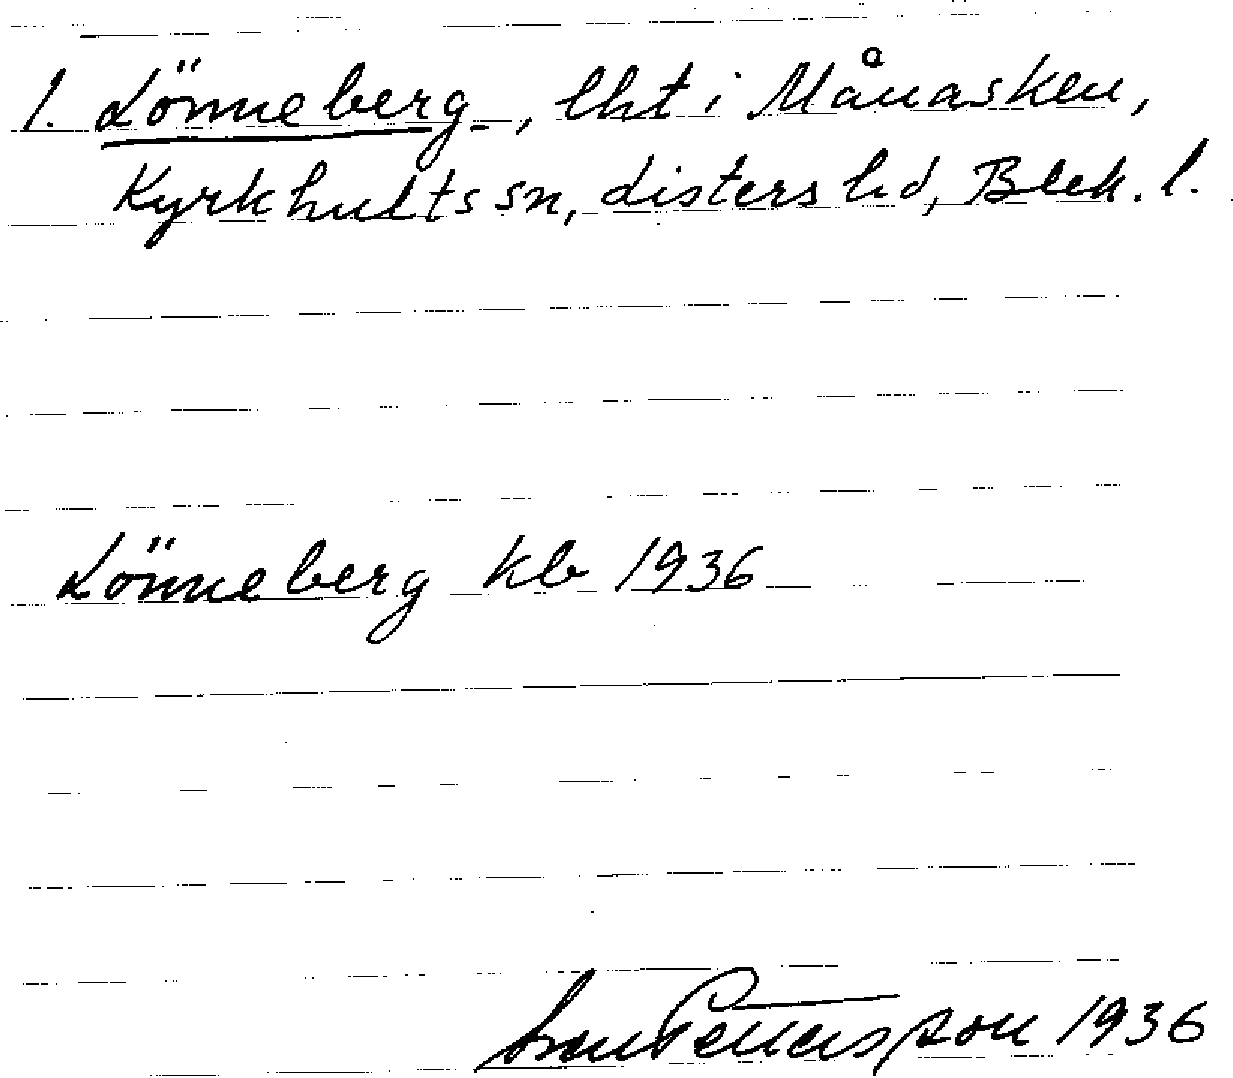 1. Lönneberg, lht i Månasken,
Kyrkhults sn, Listers hd, Blek. l.
Lönneberg kb 1936
Pettersson 1936